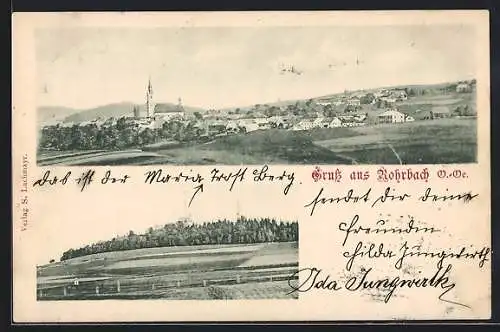 das ist der Maria Trost Berg.
Gruß aus Rohrbach O.-Oe.
sendet dir deine
freundin
Hilda Jungwirth
Ida Jungwirth
Verlag S. Lachmayr.